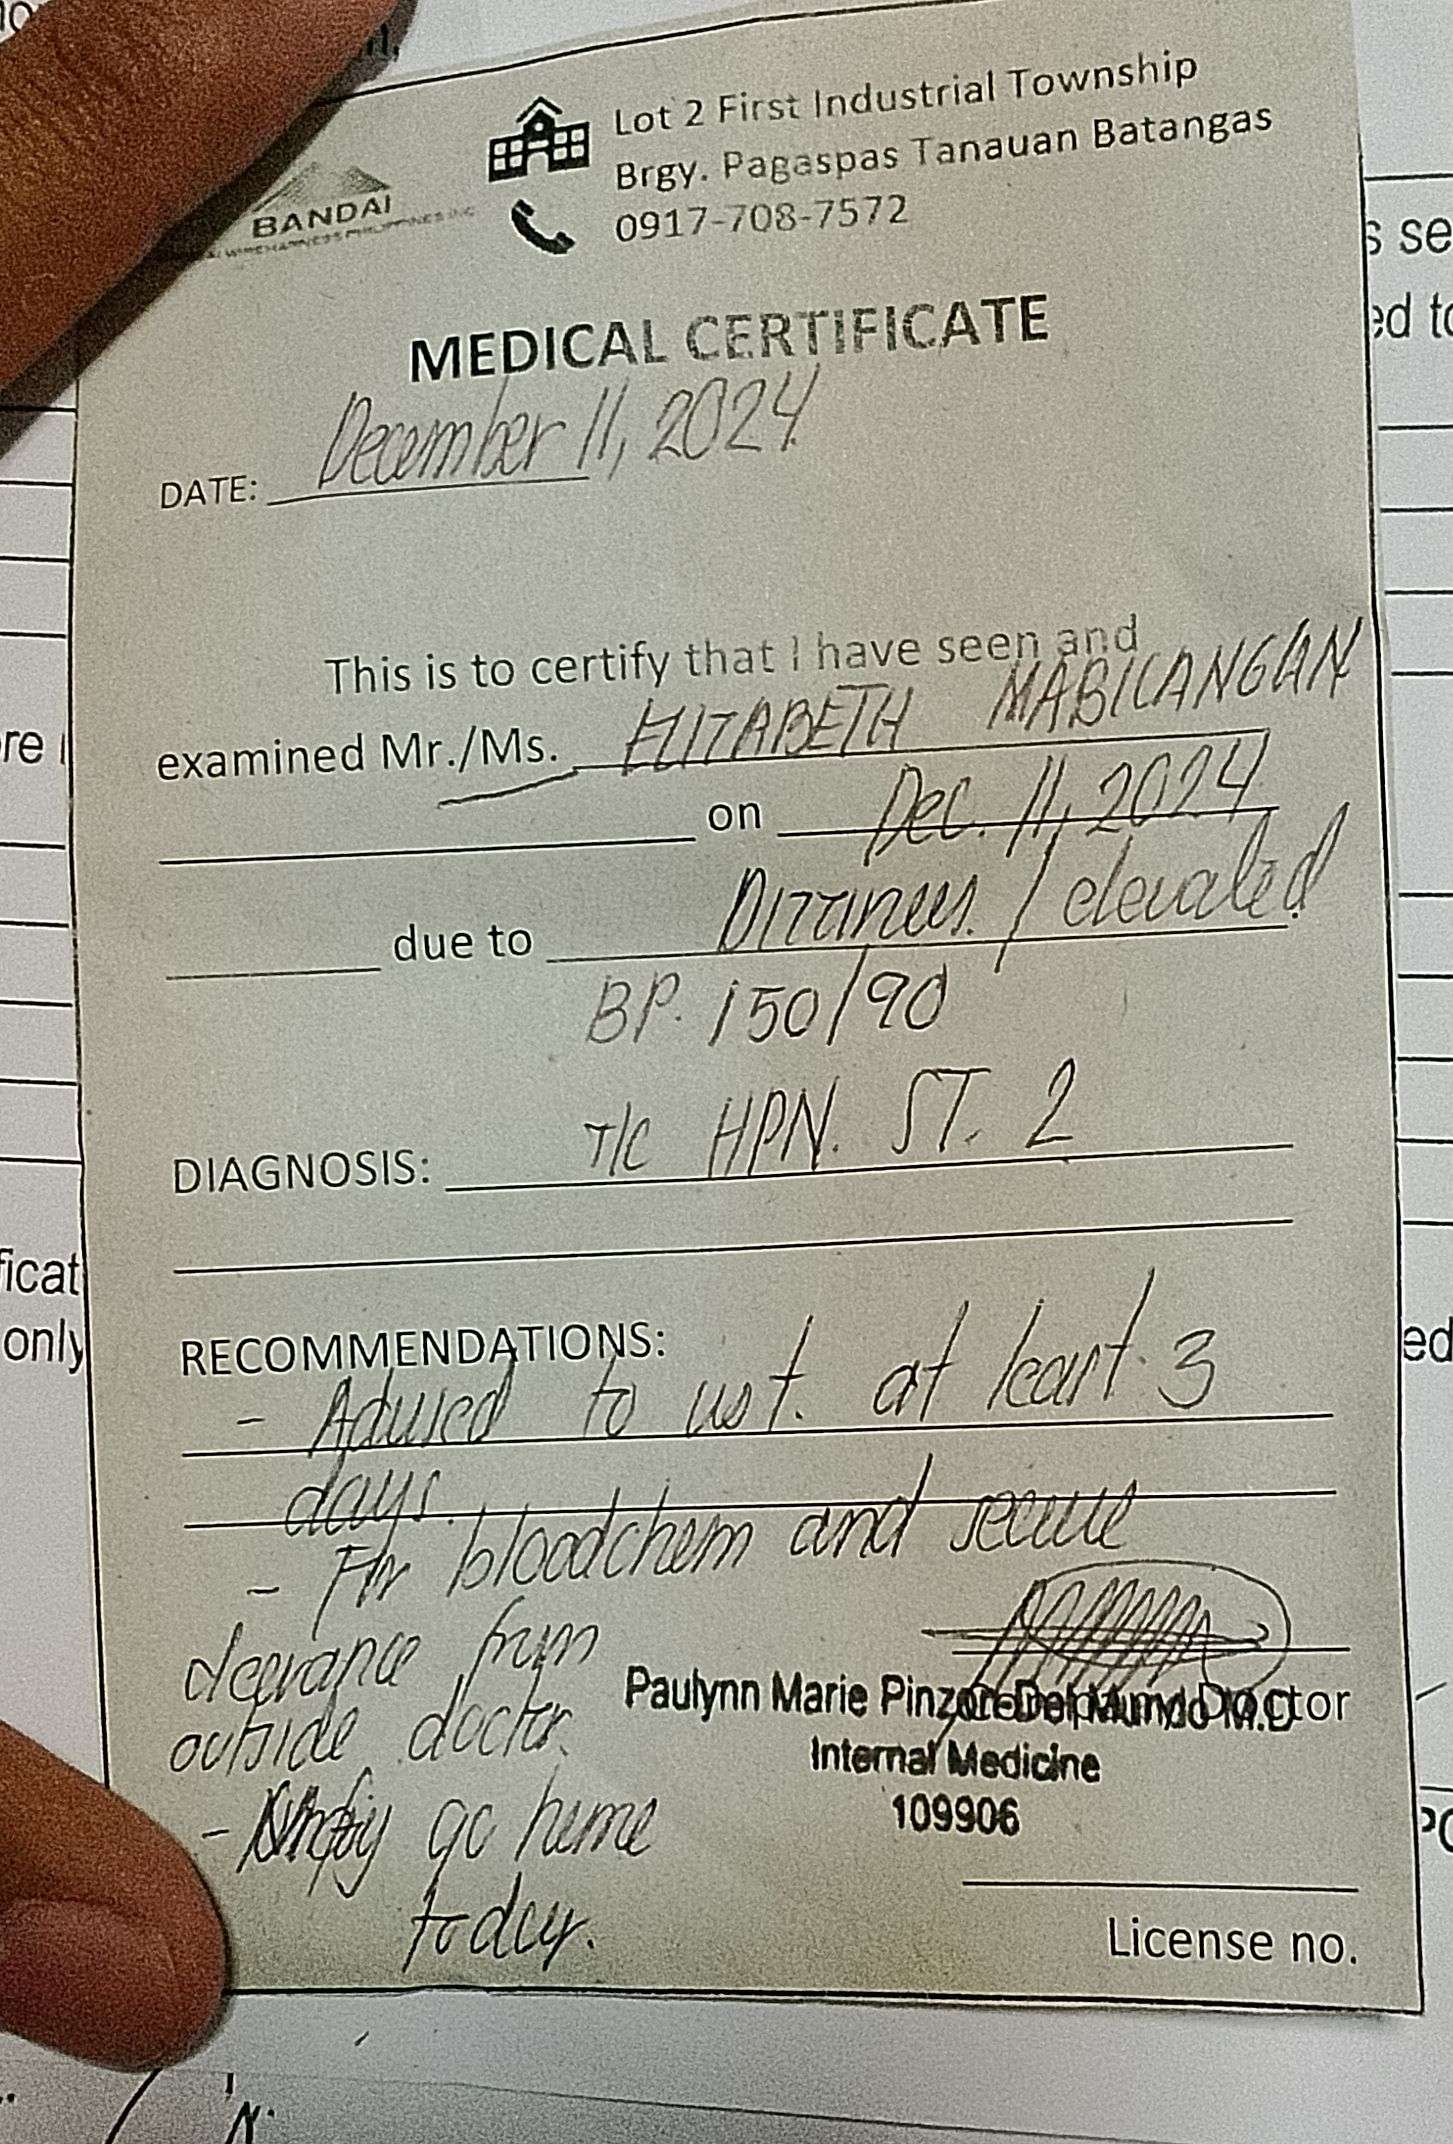 Lot 2 First Industrial Township
Brgy. Pagaspas Tanauan Batangas
0917-708-7572
BANDAI
WIREHARNESS PHILIPPINES INC
MEDICAL CERTIFICATE
DATE: December 11, 2024
This is to certify that I have seen and
examined Mr./Ms. ELIZABETH MABILANGAN
on Dec. 11, 2024
due to Dizziness / elevated
BP. 150/90
DIAGNOSIS: T/C HPN. ST. 2
RECOMMENDATIONS:
- Advised to rest. at least 3
days.
- For bloodchem and secure
clearance from
outside doctor.
Paulynn Marie Pinzon-Del Mundo M.D
Company Doctor
Internal Medicine
109906
- go home
today.
License no.
s se
ed to
re
ficat
only
ed